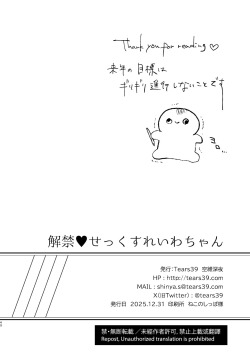 Thank you for reading♡
来年の目標は
ギリギリ進行しないことです
解禁♥せっくすれいわちゃん
発行：Tears39 空維深夜
HP : http://tears39.com
MAIL : shinya.s@tears39.com
X(旧Twitter) : @tears39
発行日 2025.12.31 印刷所 ねこのしっぽ様
禁・無断転載 ／ 未經作者許可, 禁止上載或翻譯
Repost, Unauthorized translation is prohibited